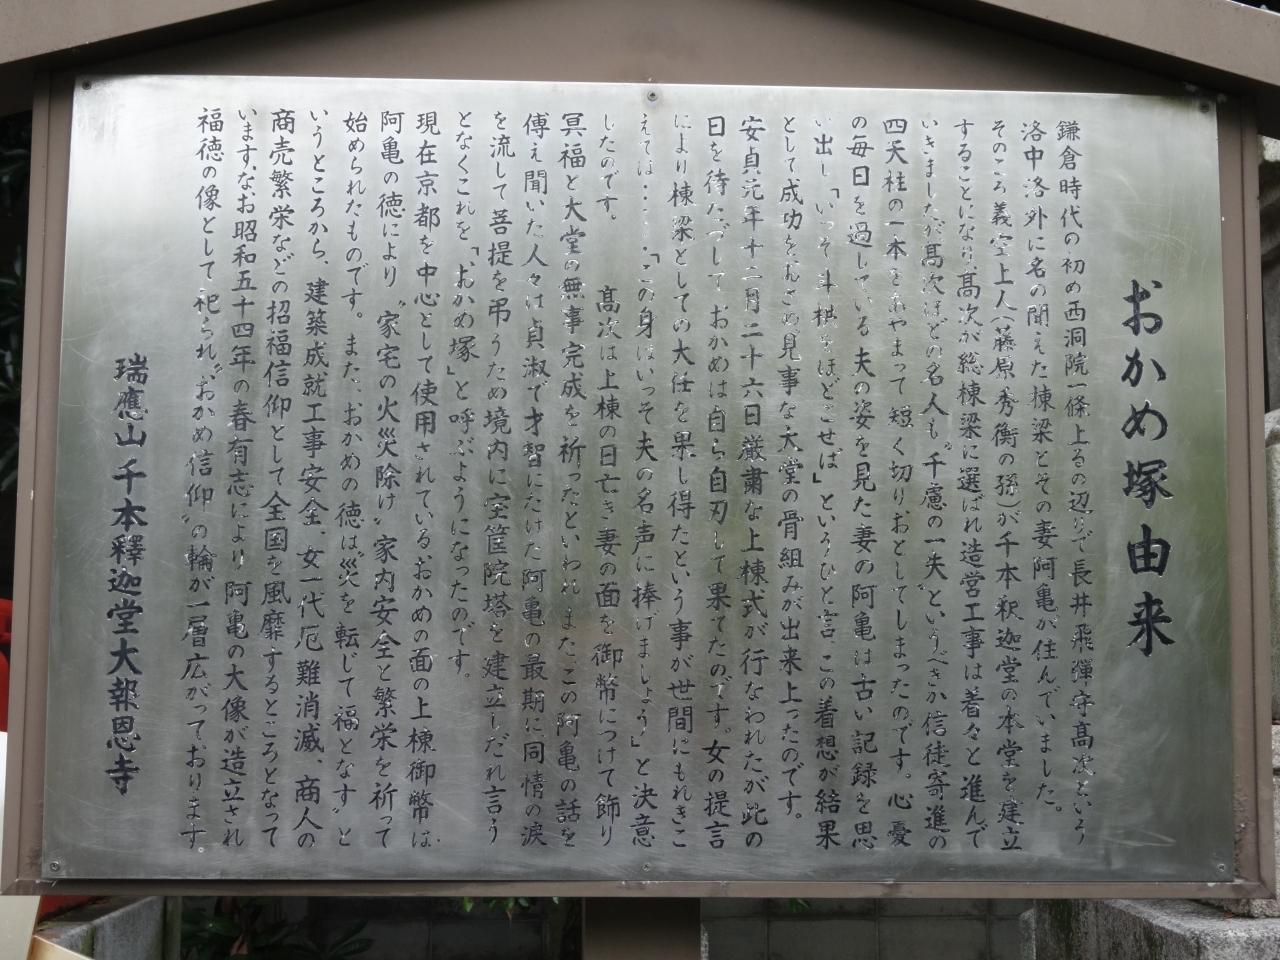 おかめ塚由来
鎌倉時代の初め西洞院一條上るの辺りで長井飛彈守高次という
洛中洛外に名の聞えた棟梁とその妻阿亀が住んでいました。
そのころ義空上人(藤原秀衡の孫)が千本釈迦堂の本堂を建立
することになり高次が総棟梁に選ばれ造営工事は着々と進んで
いきましたが高次ほどの名人も〝千慮の一失〟というべきか信徒寄進の
四天柱の一本をあやまって短く切りおとしてしまったのです。心憂
の毎日を過している夫の姿を見た妻の阿亀は古い記録を思
い出し「いっそ斗栱をほどこせば」というひと言、この着想が結果
として成功をおさめ見事な大堂の骨組みが出来上ったのです。
安貞元年十二月二十六日厳粛な上棟式が行なわれたが此の
日を待たずして、おかめは自ら自刃して果てたのです。女の提言
により棟梁としての大任を果し得たという事が世間にもれきこ
えては・・・・・「この身はいっそ夫の名声に捧げましょう」と決意
したのです。 高次は上棟の日亡き妻の面を御幣につけて飾り
冥福と大堂の無事完成を祈ったといわれ、またこの阿亀の話を
傳え聞いた人々は貞淑で才智にたけた阿亀の最期に同情の涙
を流して菩提を弔うため境内に宝筐院塔を建立しだれ言う
となくこれを「おかめ塚」と呼ぶようになったのです。
現在京都を中心として使用されているおかめの面の上棟御幣は
阿亀の徳により〝家宅の火災除け〟家内安全と繁栄を祈って
始められたものです。また、おかめの徳は〝災を転じて福となす〟と
いうところから、建築成就工事安全、女一代厄難消滅、商人の
商売繁栄などの招福信仰として全国を風靡するところとなって
います。なお昭和五十四年の春有志により阿亀の大像が造立され
福徳の像として祀られ〝おかめ信仰〟の輪が一層広がっております。
瑞應山千本釋迦堂大報恩寺